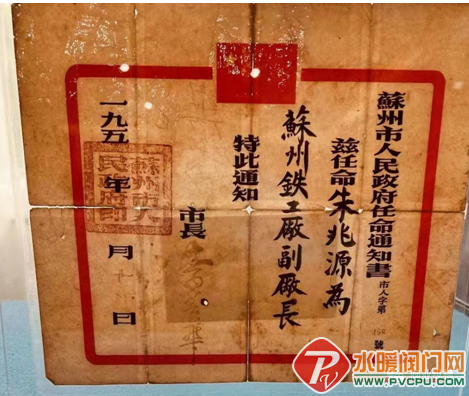 蘇州市人民政府任命通知書
市人字第158號
茲任命朱兆源為
蘇州鉄工廠副廠長
特此通知
市長
一九五 年 月 日
蘇州市人民政府
水暖阀门网
WWW.PVCPU.COM